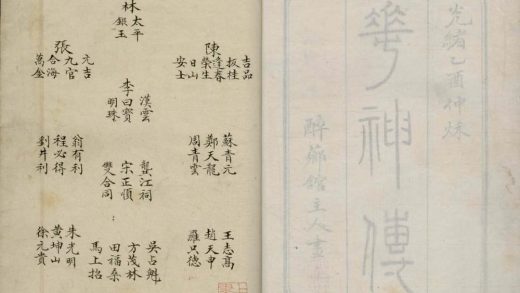 光緒乙酉仲秌
神傳
館主人
林
太平
銀玉
陳
吉品
扳桂
逢春
榮生
日山
安士
張
元吉
九官
合海
萬金
李
漢雲
曰寶
明珠
蘇青元
鄭天龍
周青雲
龔江祠
宋正順
雙合同
翁有利
程必得
劉井利
王志高
趙天申
羅只德
吳占魁
方茂林
田福桑
馬上招
朱光明
黃坤山
徐元貴